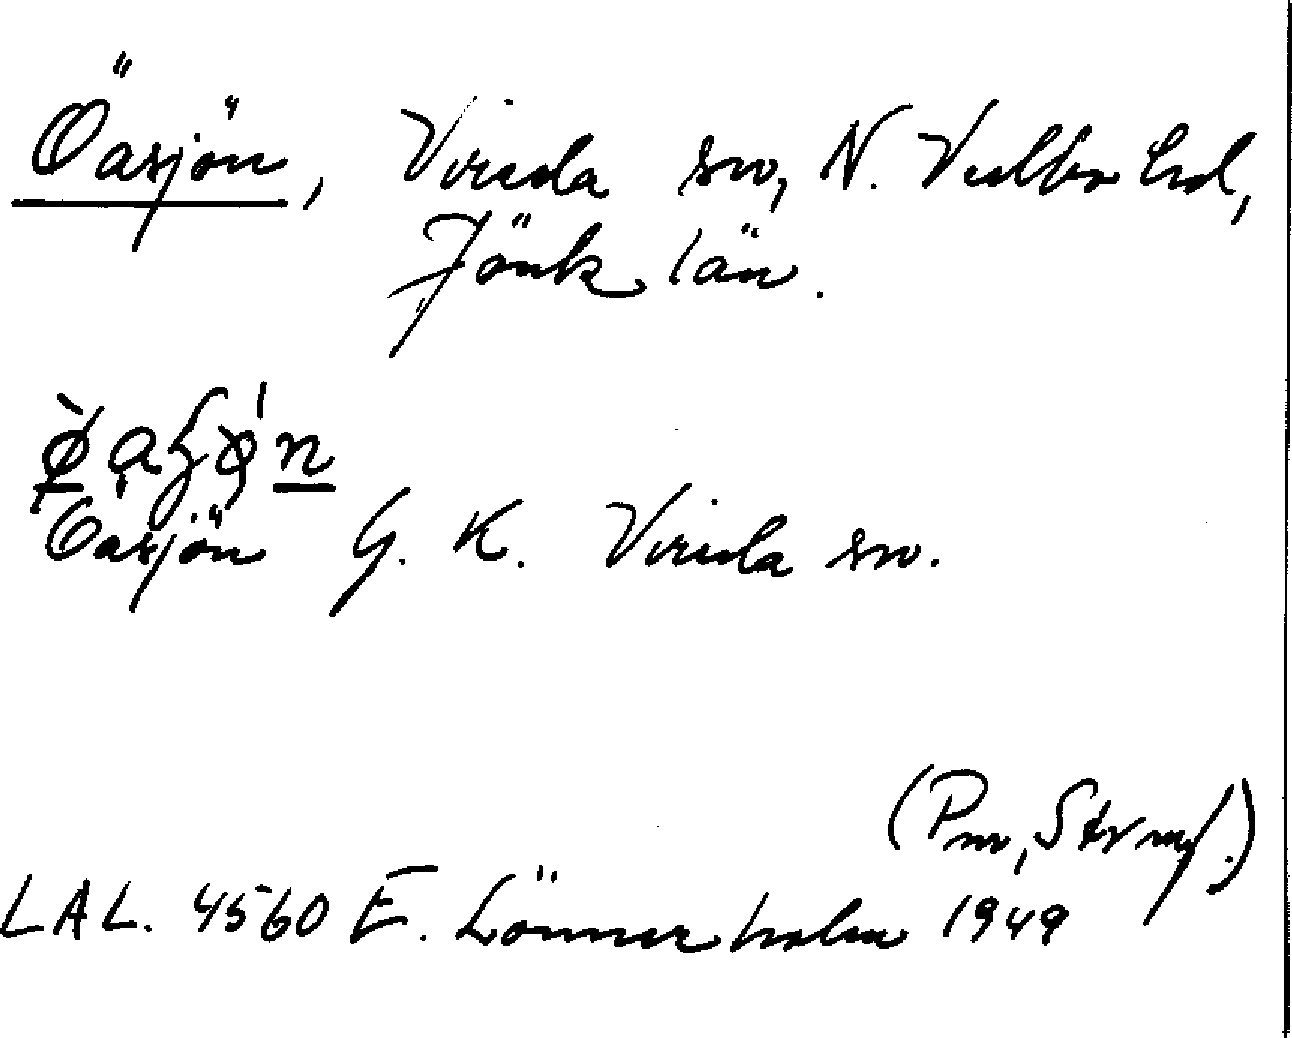 Öasjön, Vireda sn, N. Vedbo hd,
Jönk län.
Öasjön G. K. Vireda sn.
(Pm, )
LAL. 4560 E. Lönnerholm 1949